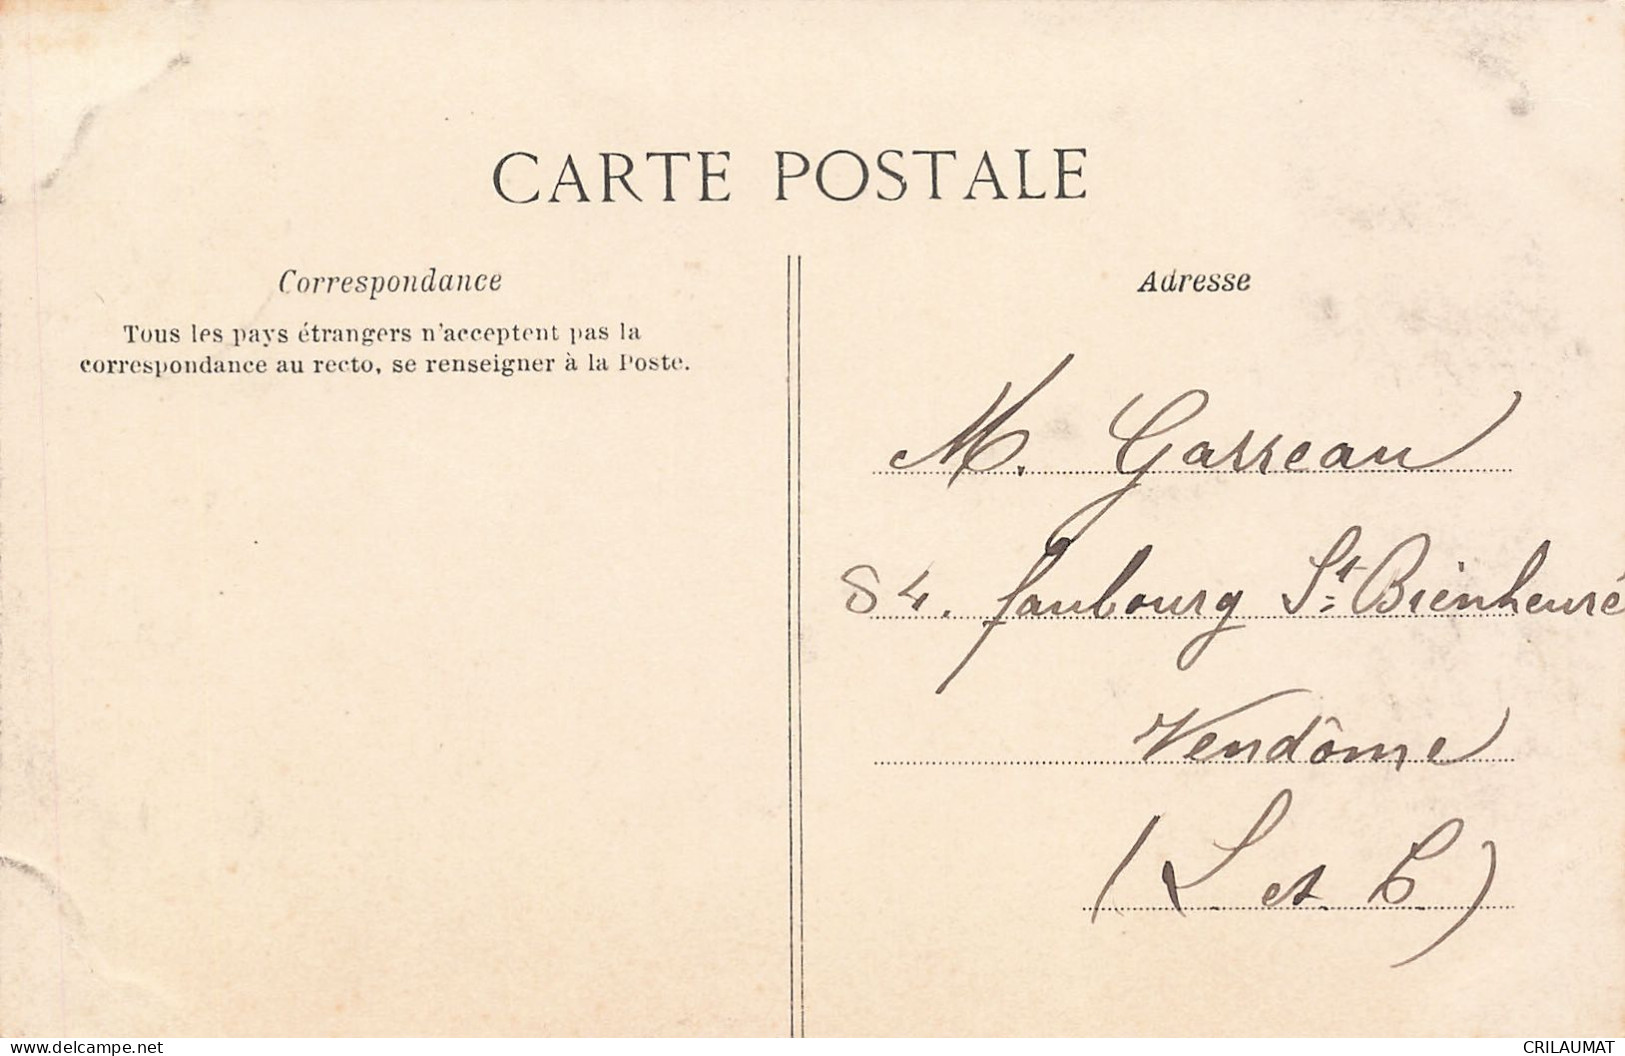 CARTE POSTALE
Correspondance
Tous les pays étrangers n'acceptent pas la
correspondance au recto, se renseigner à la Poste.
Adresse
M. Garreau
84. faubourg St Bienheuré
Vendôme
(L. et C.)
www.delcampe.net
CRILAUMAT